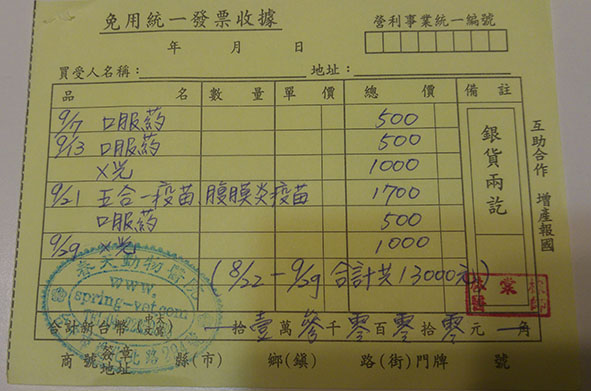 免用統一發票收據
營利事業統一編號
年 月 日
買受人名稱： 地址：
品 名 數 量 單 價 總 價 備 註
9/7 口服药 500
9/13 口服药 500
X光 1000
9/21 五合一疫苗、腹膜炎疫苗 1700
口服药 500
9/29 X光 1000
(8/22-9/29 合計共13000元)
銀貨兩訖
互助合作 增產報國
動物醫院
www.
spring-vet.com
合計新台幣 拾壹萬參千零百零拾零元 角
商號簽章 地址 縣(市) 鄉(鎮) 路(街)門牌 號